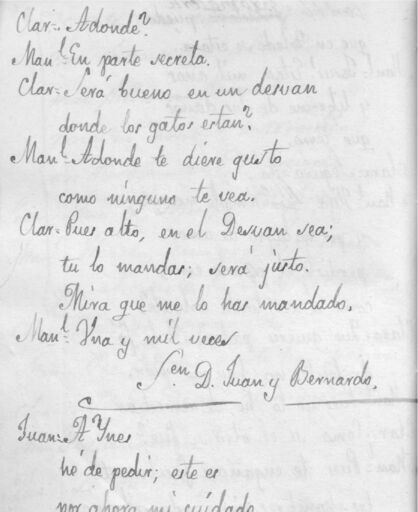 Clar= Adonde?
Man.l En parte secreta.
Clar= Será bueno en un desvan
donde los gatos estan?
Man.l Adonde te diere gusto
como ninguno te vea.
Clar= Pues alto, en el Desvan sea;
tu lo mandas; será justo.
Mira que me lo has mandado.
Man.l Vna y mil veces
Sen D. Juan y Bernardo.
Juan= A Ynes
hé de pedir; este es
por ahora mi cuidado